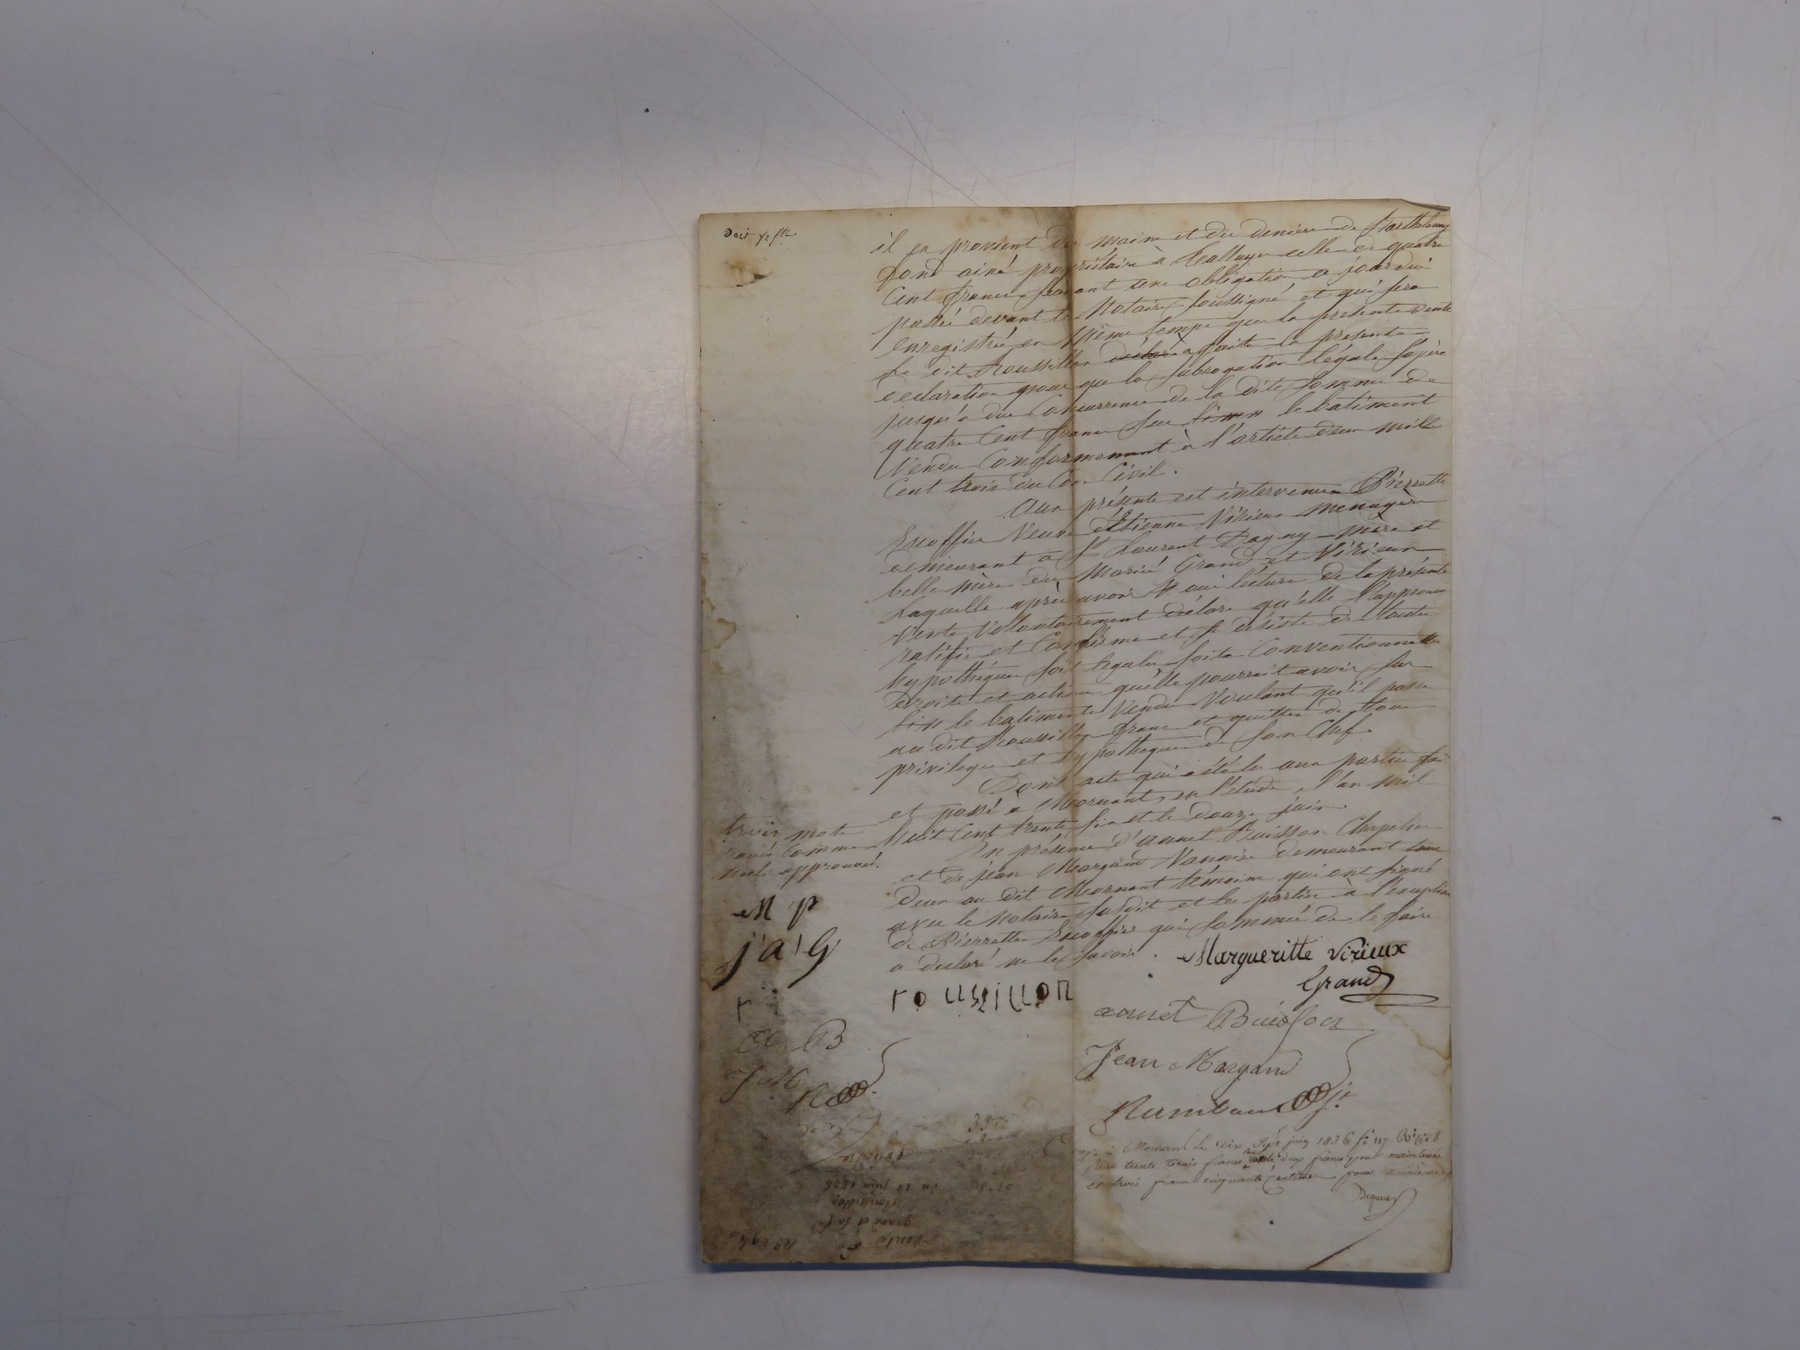 il en provient des mains et des deniers de Barthelemy
fond ainé propriétaire à celle de quatre
Cent francs suivant une obligation a jourdui
passée devant le Notaire soussigné, et qui sera
enregistrée en même temps que la présente vente
le dit Roussillon a faite la présente
declaration pour que la subrogation légale s'opère
jusqu'a due Concurrence de la dite somme de
quatre Cent francs sur le batiment
Vendu Conformement à l'article deux mille
Cent trois du Code Civil.
Aux présente est intervenue Pierrette
Escoffier Veuve d'Etienne Virieux Menagère
demeurant a St Laurent Dagny mère et
belle mère des Mariés Grand et Virieux
Laquelle après avoir oui lecture de la présente
Vente Volontairement déclare qu'elle l'approuve
ratifie et Confirme et se désiste de toute
hypothéque soit légale soite Conventionnelle
droits et actions qu'elle pourrait avoir sur
le batiments Vendu Voulant qu'il passe
au dit Roussillon franc et quitte de tous
privilege et hypotheque de son Chef.
Dont acte qui a été lu aux parties fai
et passé a Mornant, en l'étude, l'an mil
huit Cent trente six et le douze juin
En présence d'annet Buisson Chapelier
et de jean Margand Vannier demeurant tous
deux au dit Mornant témoins qui ont signé
avec le Notaire susdit et les parties à l'exception
de Pierrette Escoffier qui sommée de le faire
a declaré ne le savoir.
trois mots
rayés Comme
nuls approuvé.
M p
j'a'G
r
a B
J M
Margueritte Virieux
Grand
roussillon
annet Buisson
Jean Margand
à Mornant le Dix Sept juin 1836 fo 117
trente trois francs deux francs pour
trois francs cinquante Centimes pour
du 12 juin 1836
Roussillon